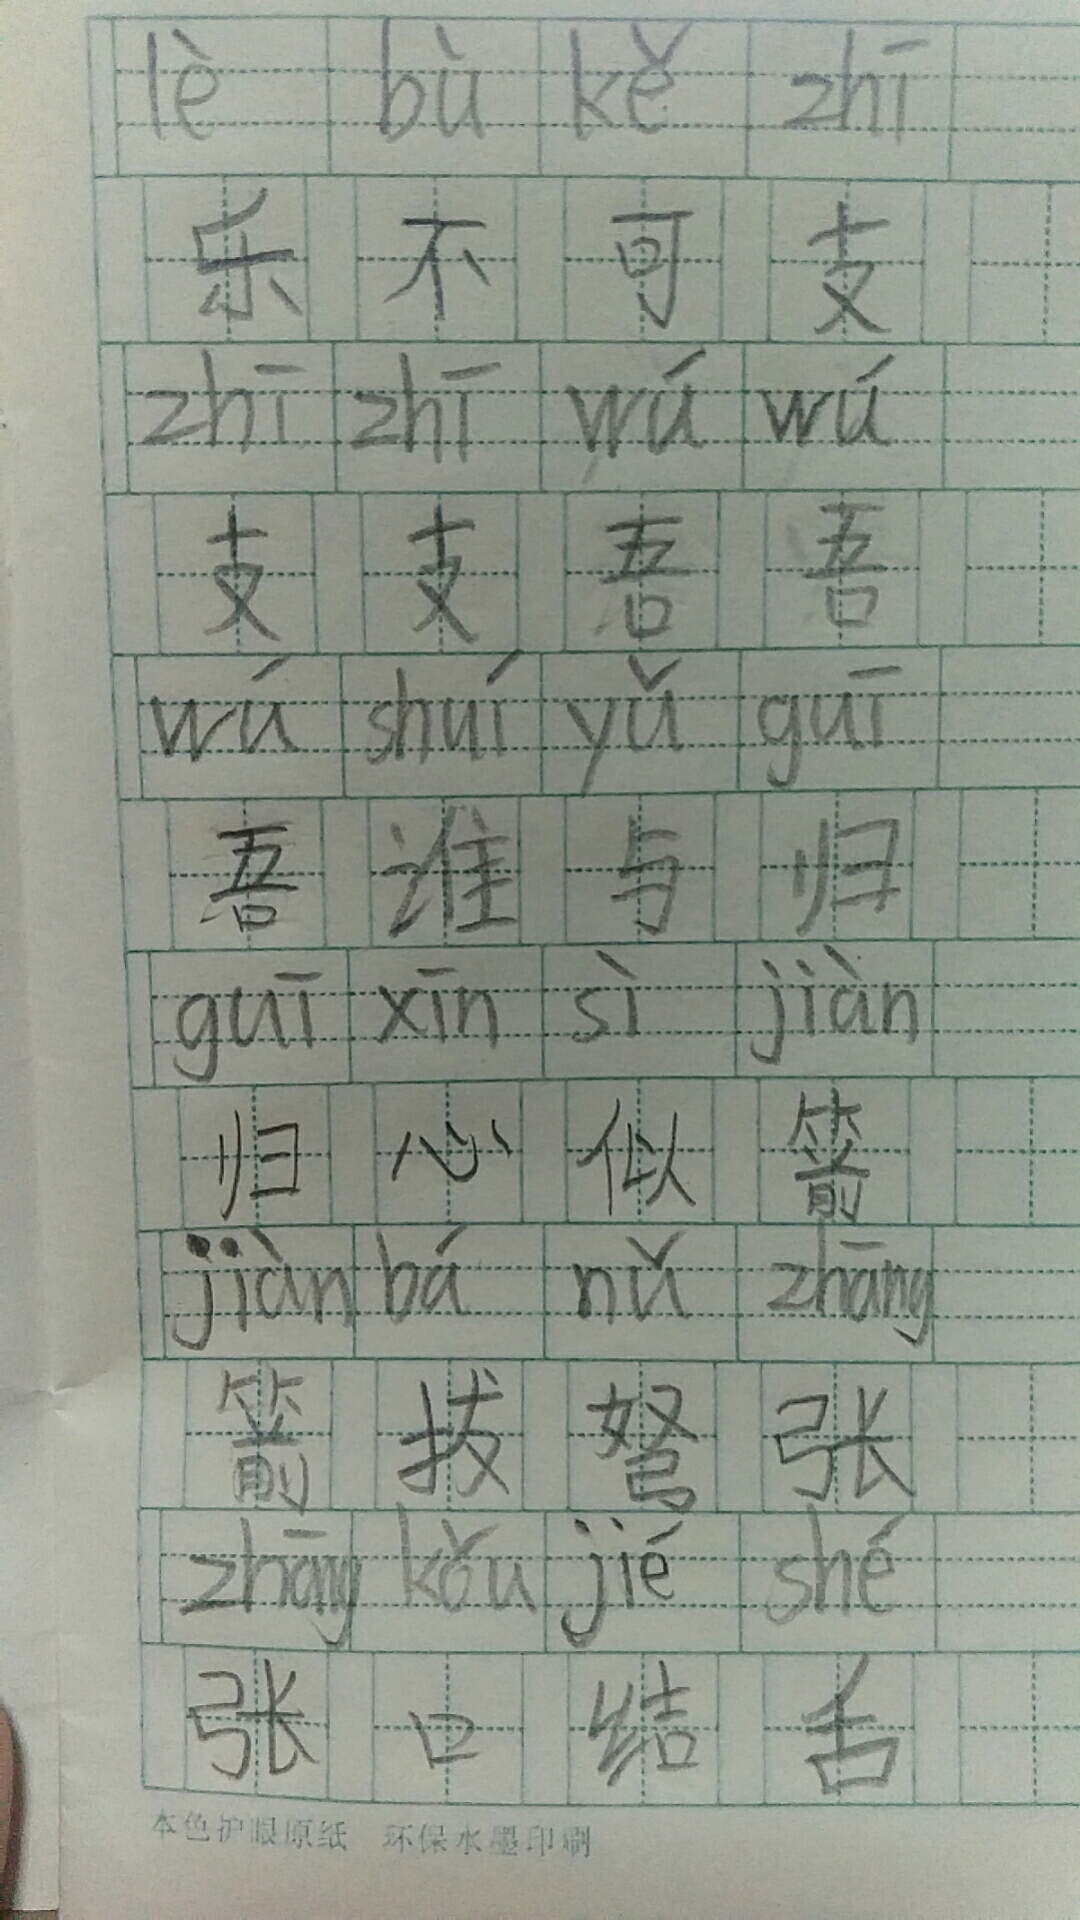 lè bù kě zhī
乐不可支
zhī zhī wú wú
支支吾吾
wú shuí yǔ guī
吾谁与归
guī xīn sì jiàn
归心似箭
jiàn bá nǔ zhāng
箭拔弩张
zhāng kǒu jié shé
张口结舌
本色护眼原纸 环保水墨印刷